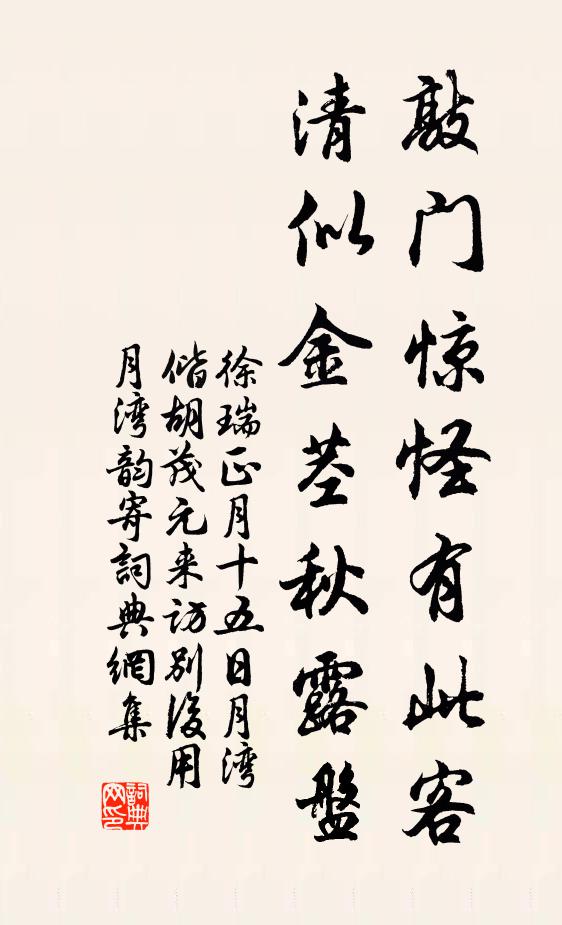 敲门惊怪有此客
清似金茎秋露盘
徐瑞正月十五日月湾
偕胡茂元来访别后用
月湾韵寄詞典網集
詞典网印